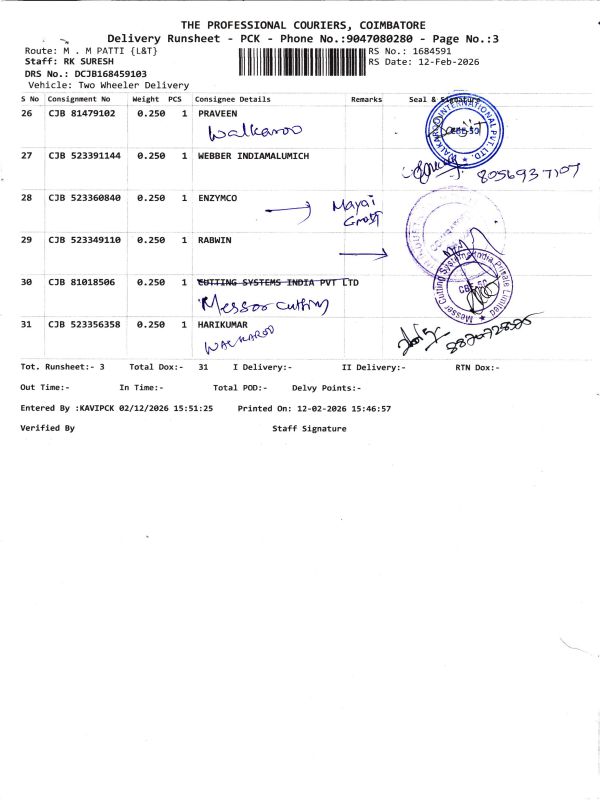 THE PROFESSIONAL COURIERS, COIMBATORE
Delivery Runsheet - PCK - Phone No.:9047080280 - Page No.:3
Route: M . M PATTI {L&T} RS No.: 1684591
Staff: RK SURESH RS Date: 12-Feb-2026
DRS No.: DCJB168459103
Vehicle: Two Wheeler Delivery
S No Consignment No Weight PCS Consignee Details Remarks Seal & Signature
26 CJB 81479102 0.250 1 PRAVEEN
Walkaroo
27 CJB 523391144 0.250 1 WEBBER INDIAMALUMICH
8056937107
28 CJB 523360840 0.250 1 ENZYMCO
29 CJB 523349110 0.250 1 RABWIN
30 CJB 81018506 0.250 1 CUTTING SYSTEMS INDIA PVT LTD
Messor cutting
Messer Cutting Systems India Private Limited
CBE-50
31 CJB 523356358 0.250 1 HARIKUMAR
WALKAROO
Tot. Runsheet:- 3 Total Dox:- 31 I Delivery:- II Delivery:- RTN Dox:-
Out Time:- In Time:- Total POD:- Delvy Points:-
Entered By :KAVIPCK 02/12/2026 15:51:25 Printed On: 12-02-2026 15:46:57
Verified By Staff Signature